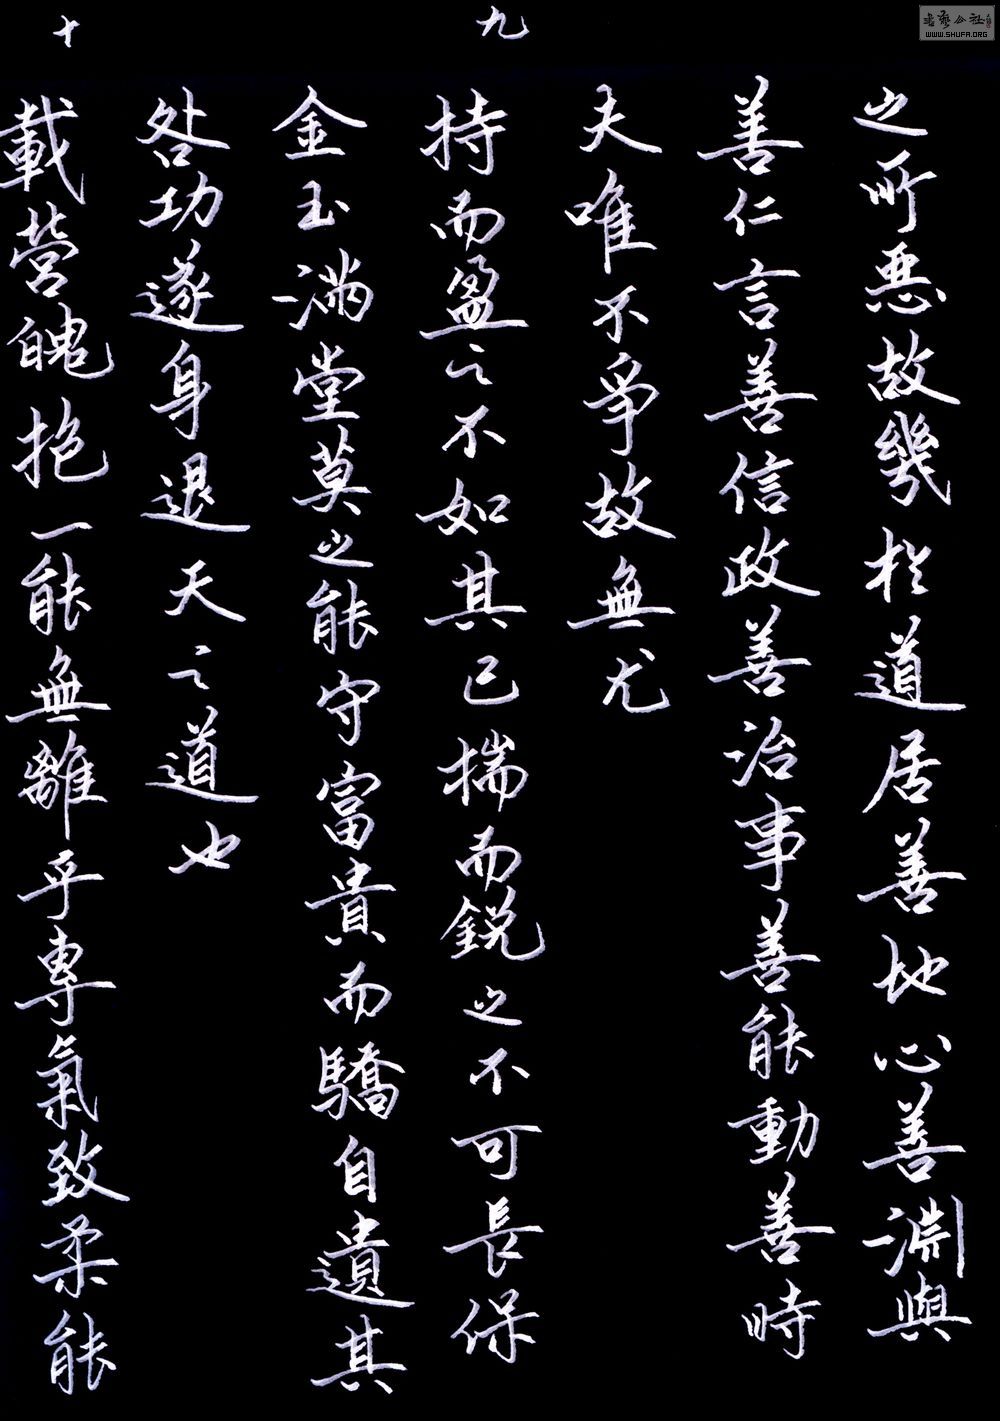 之所惡故幾於道居善地心善淵與
善仁言善信政善治事善能動善時
夫唯不爭故無尤
九
持而盈之不如其已揣而銳之不可長保
金玉滿堂莫之能守富貴而驕自遺其
咎功遂身退天之道也
十
載營魄抱一能無離乎專氣致柔能
WWW.SHUFA.ORG